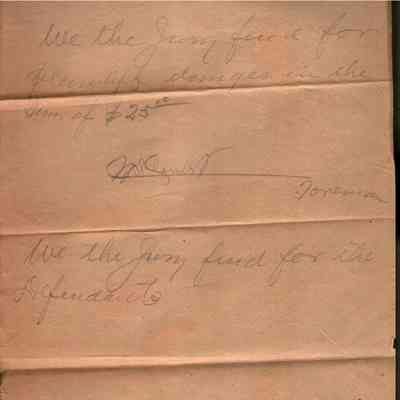 We the Jury find for
Plaintiff damges in the
sum of $25⁰⁰
Foreman
We the Jury find for the
Defendants